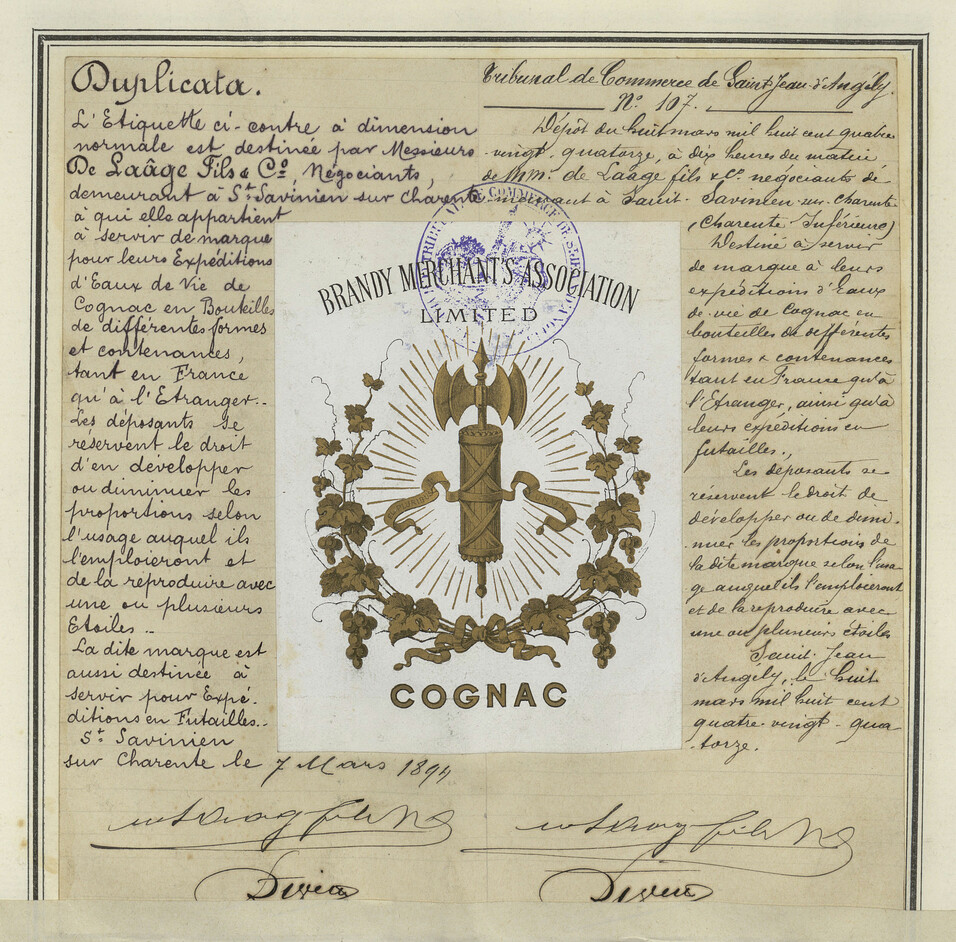 Duplicata.
L'Etiquette ci-contre à dimension
normale est destinée par Messieurs
De Laâge Fils & Cº Négociants,
demeurant à St Savinien sur Charente
à qui elle appartient
à servir de marque
pour leurs Expéditions
d'Eaux de Vie de
Cognac en Bouteilles
de différentes formes
et contenances,
tant en France
qu'à l'Etranger..
Les déposants se
réservent le droit
d'en développer
ou diminuer les
proportions selon
l'usage auquel ils
l'emploieront et
de la réproduire avec
une ou plusieurs
Etoiles..
La dite marque est
aussi destinée à
servir pour Expé-
ditions en Futailles..
St Savinien
sur Charente le 7 Mars 1894
BRANDY MERCHANT'S ASSOCIATION
LIMITED
COGNAC
Tribunal de Commerce de Saint Jean d'Angély.
Nº 107.
Dépôt du huit mars mil huit cent quatre
vingt quatorze, à dix heures du matin
de Mm. de Laage fils & Cº négociants de-
-meurant à Saint-Savinien sur-charente
(Charente Inférieure)
Destiné à servir
de marque à leurs
expéditions d'Eaux
de-vie de Cognac en
bouteilles de différentes
formes & contenances
tant en France qu'à
l'Etranger, ainsi qu'à
leurs expéditions en
futailles.
Les déposants se
réservent le droit de
développer ou de dimi-
-nuer les proportions de
la dite marque selon l'usa
ge auquel ils l'emploieront
et de la reproduire avec
une ou plusieurs étoiles
Saint-Jean
d'Angély, le huit
mars mil huit cent
quatre-vingt-qua-
-torze.